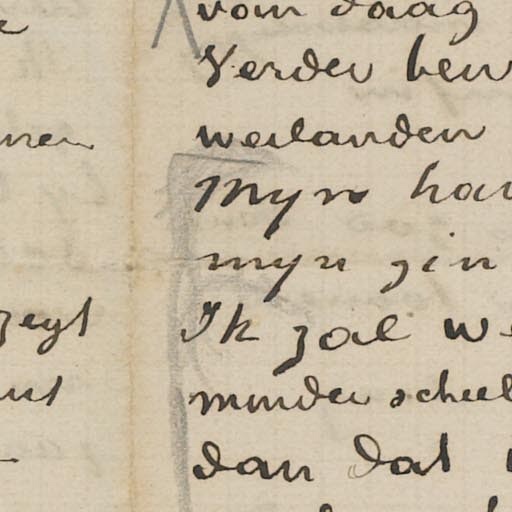 zegt
van daag
Verder ben
weilanden
Myn
myn zin
Ik zal we
minder scheel
dan dat